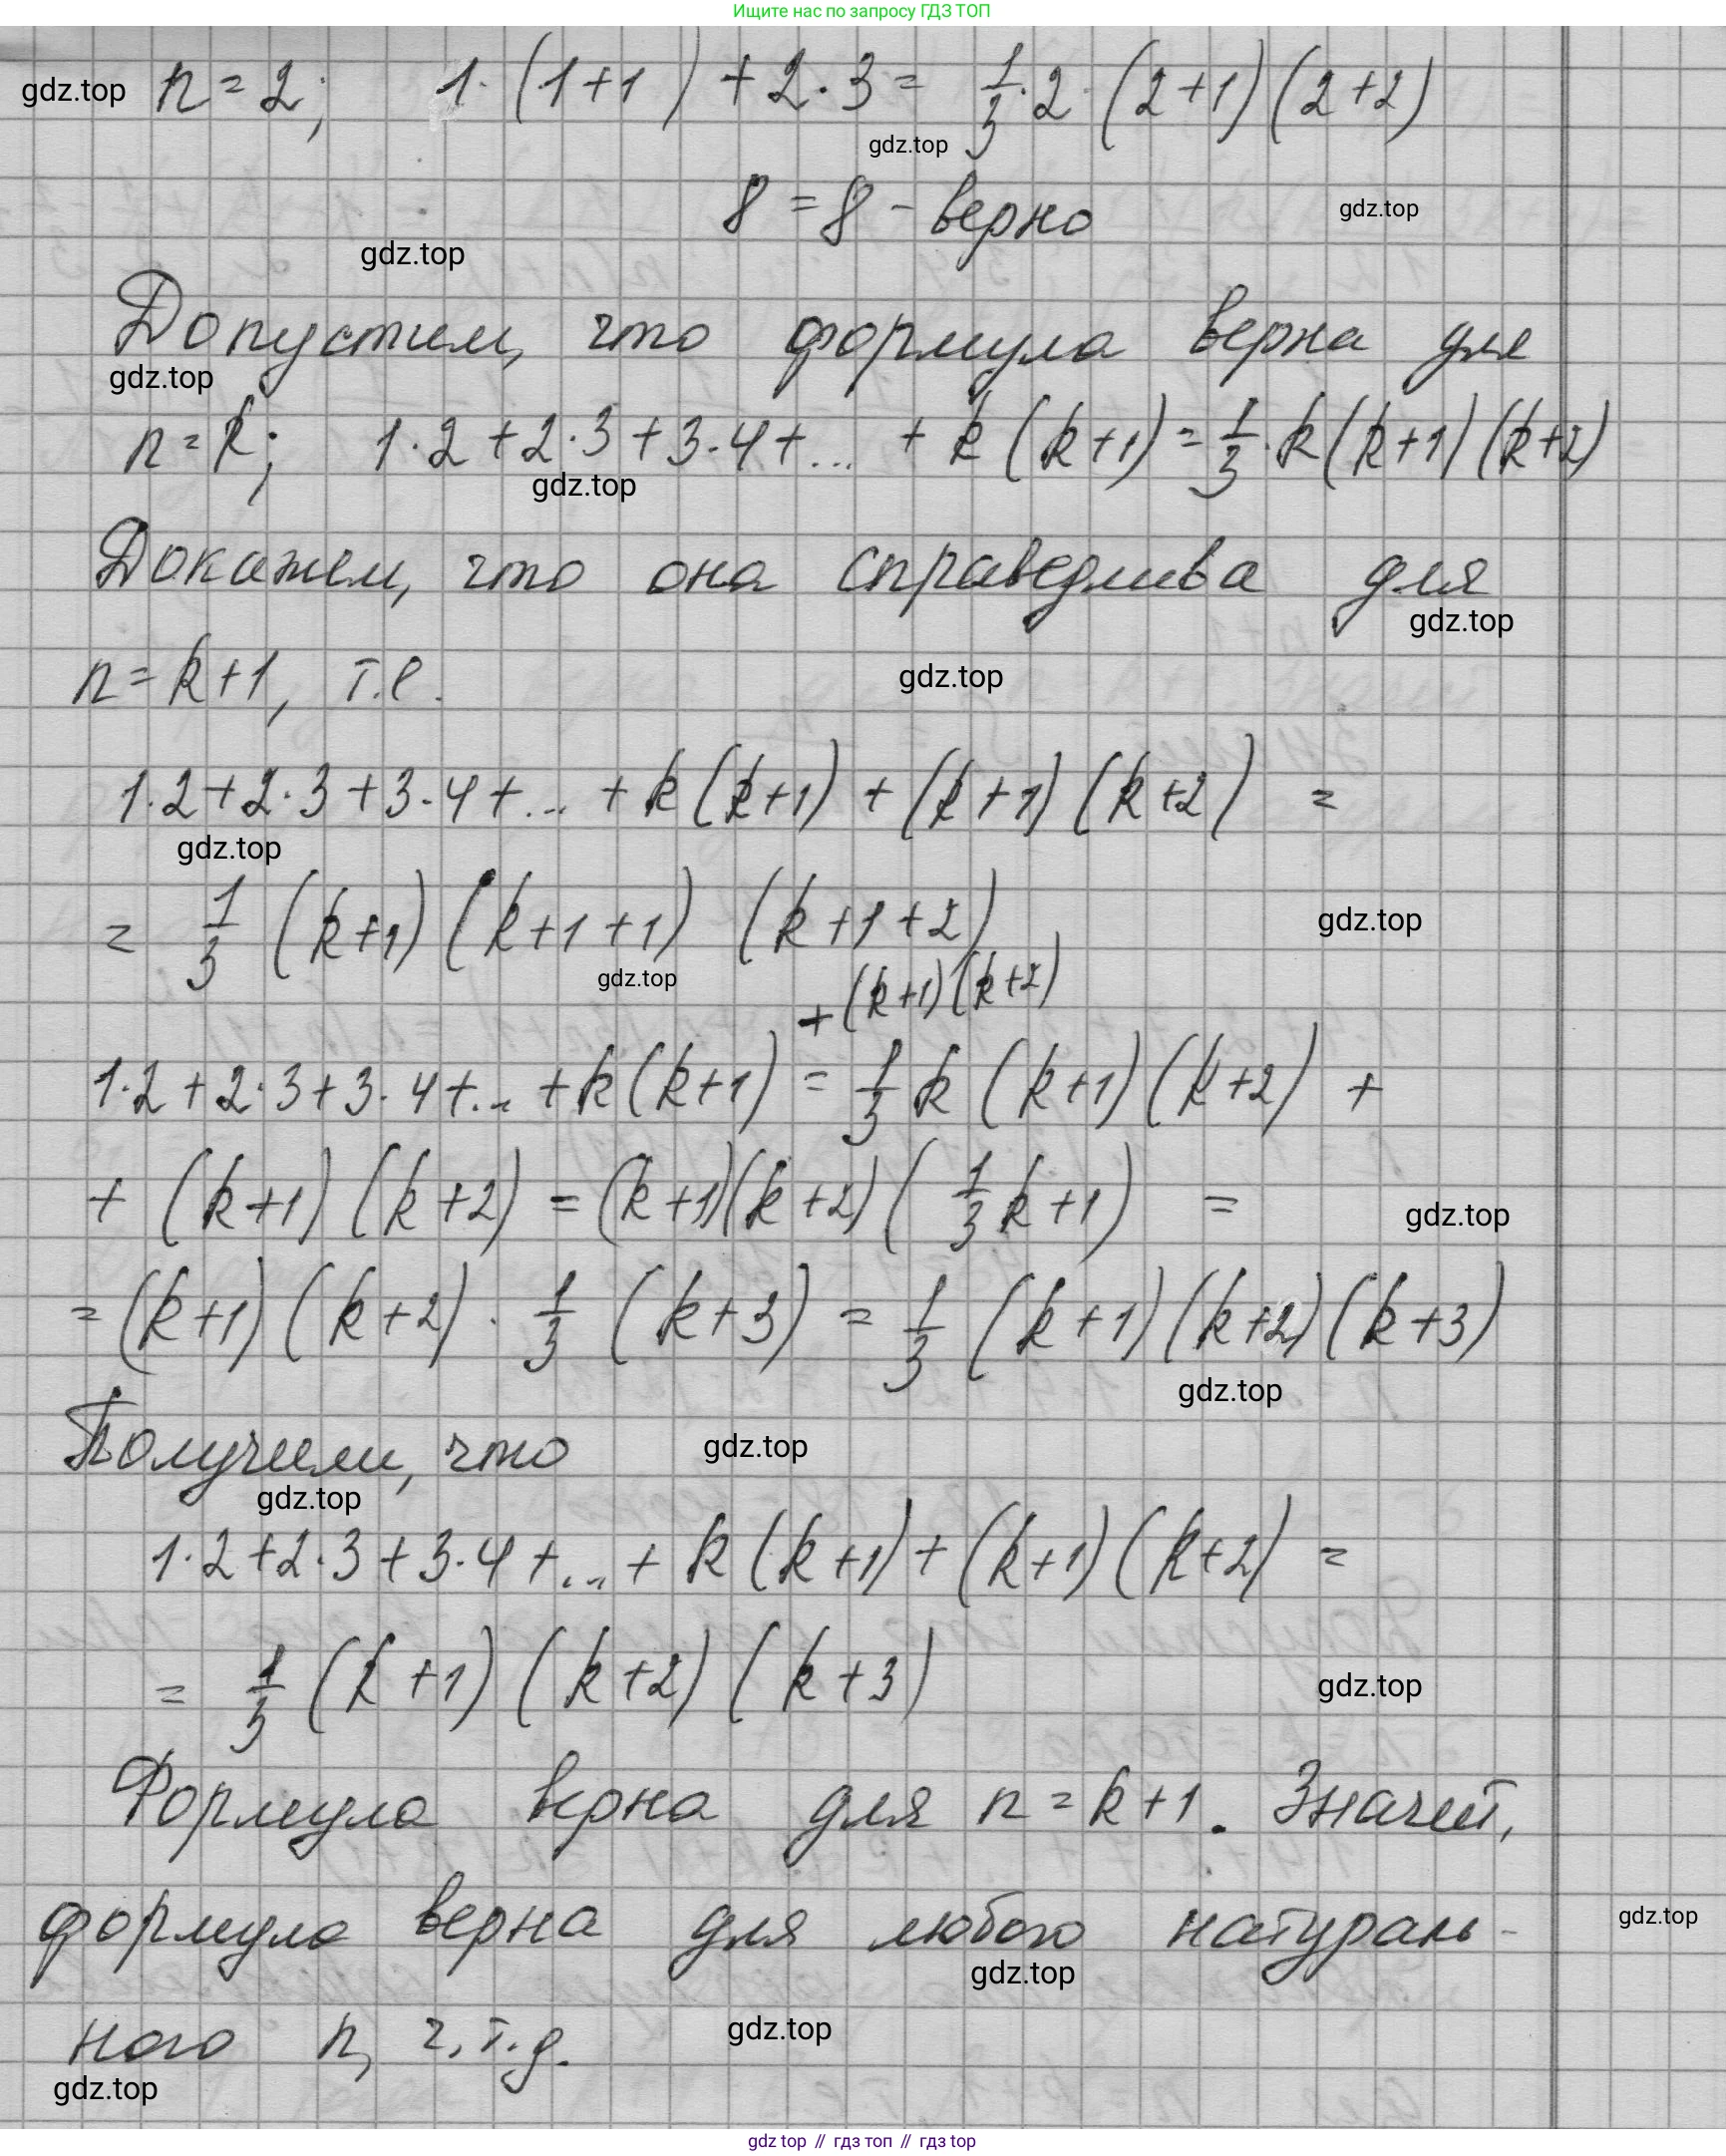 Ищите нас по запросу ГДЗ ТОП
gdz.top n=2; 1·(1+1)+2·3= 1/3·2·(2+1)(2+2)
gdz.top
8=8 - верно gdz.top
gdz.top
Допустим, что формула верна для
gdz.top
n=k; 1·2+2·3+3·4+... + k(k+1)=1/3·k(k+1)(k+2)
gdz.top
Докажем, что она справедлива для
gdz.top
n=k+1, т.е. gdz.top
1·2+2·3+3·4+... +k(k+1)+(k+1)(k+2) =
gdz.top
= 1/3 (k+1)(k+1+1) (k+1+2) gdz.top
gdz.top
+(k+1)(k+2)
1·2+2·3+3·4+... +k(k+1) = 1/3 k (k+1)(k+2) +
+ (k+1)(k+2) =(k+1)(k+2)(1/3 k+1) = gdz.top
=(k+1)(k+2)·1/3 (k+3) = 1/3 (k+1)(k+2)(k+3)
gdz.top
Получили, что gdz.top
gdz.top
1·2+2·3+3·4+...+ k(k+1)+(k+1)(k+2) =
= 1/3 (k+1)(k+2)(k+3) gdz.top
Формула верна для n=k+1. Значит,
формула верна для любого натураль- gdz.top
gdz.top
ного n, ч.т.д. gdz.top
gdz.top
gdz top // гдз топ // гдз top